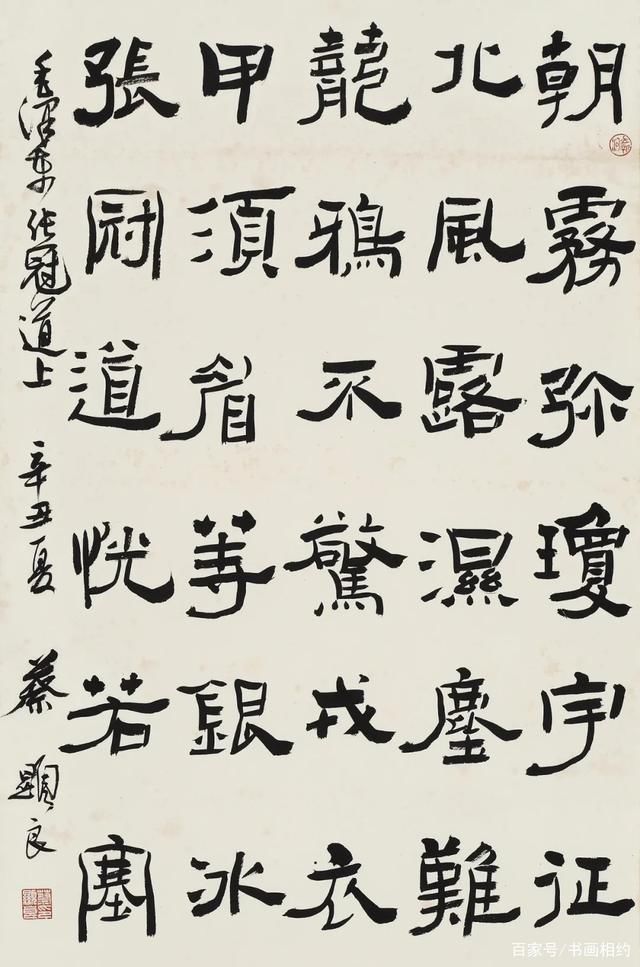 朝霧弥瓊宇征
北風露濕塵難
龍鴉不驚戎衣
甲須眉等銀冰
張冠道恍若塞
毛澤東张冠道上 辛丑夏 蔡顯良
百家号/书画相约